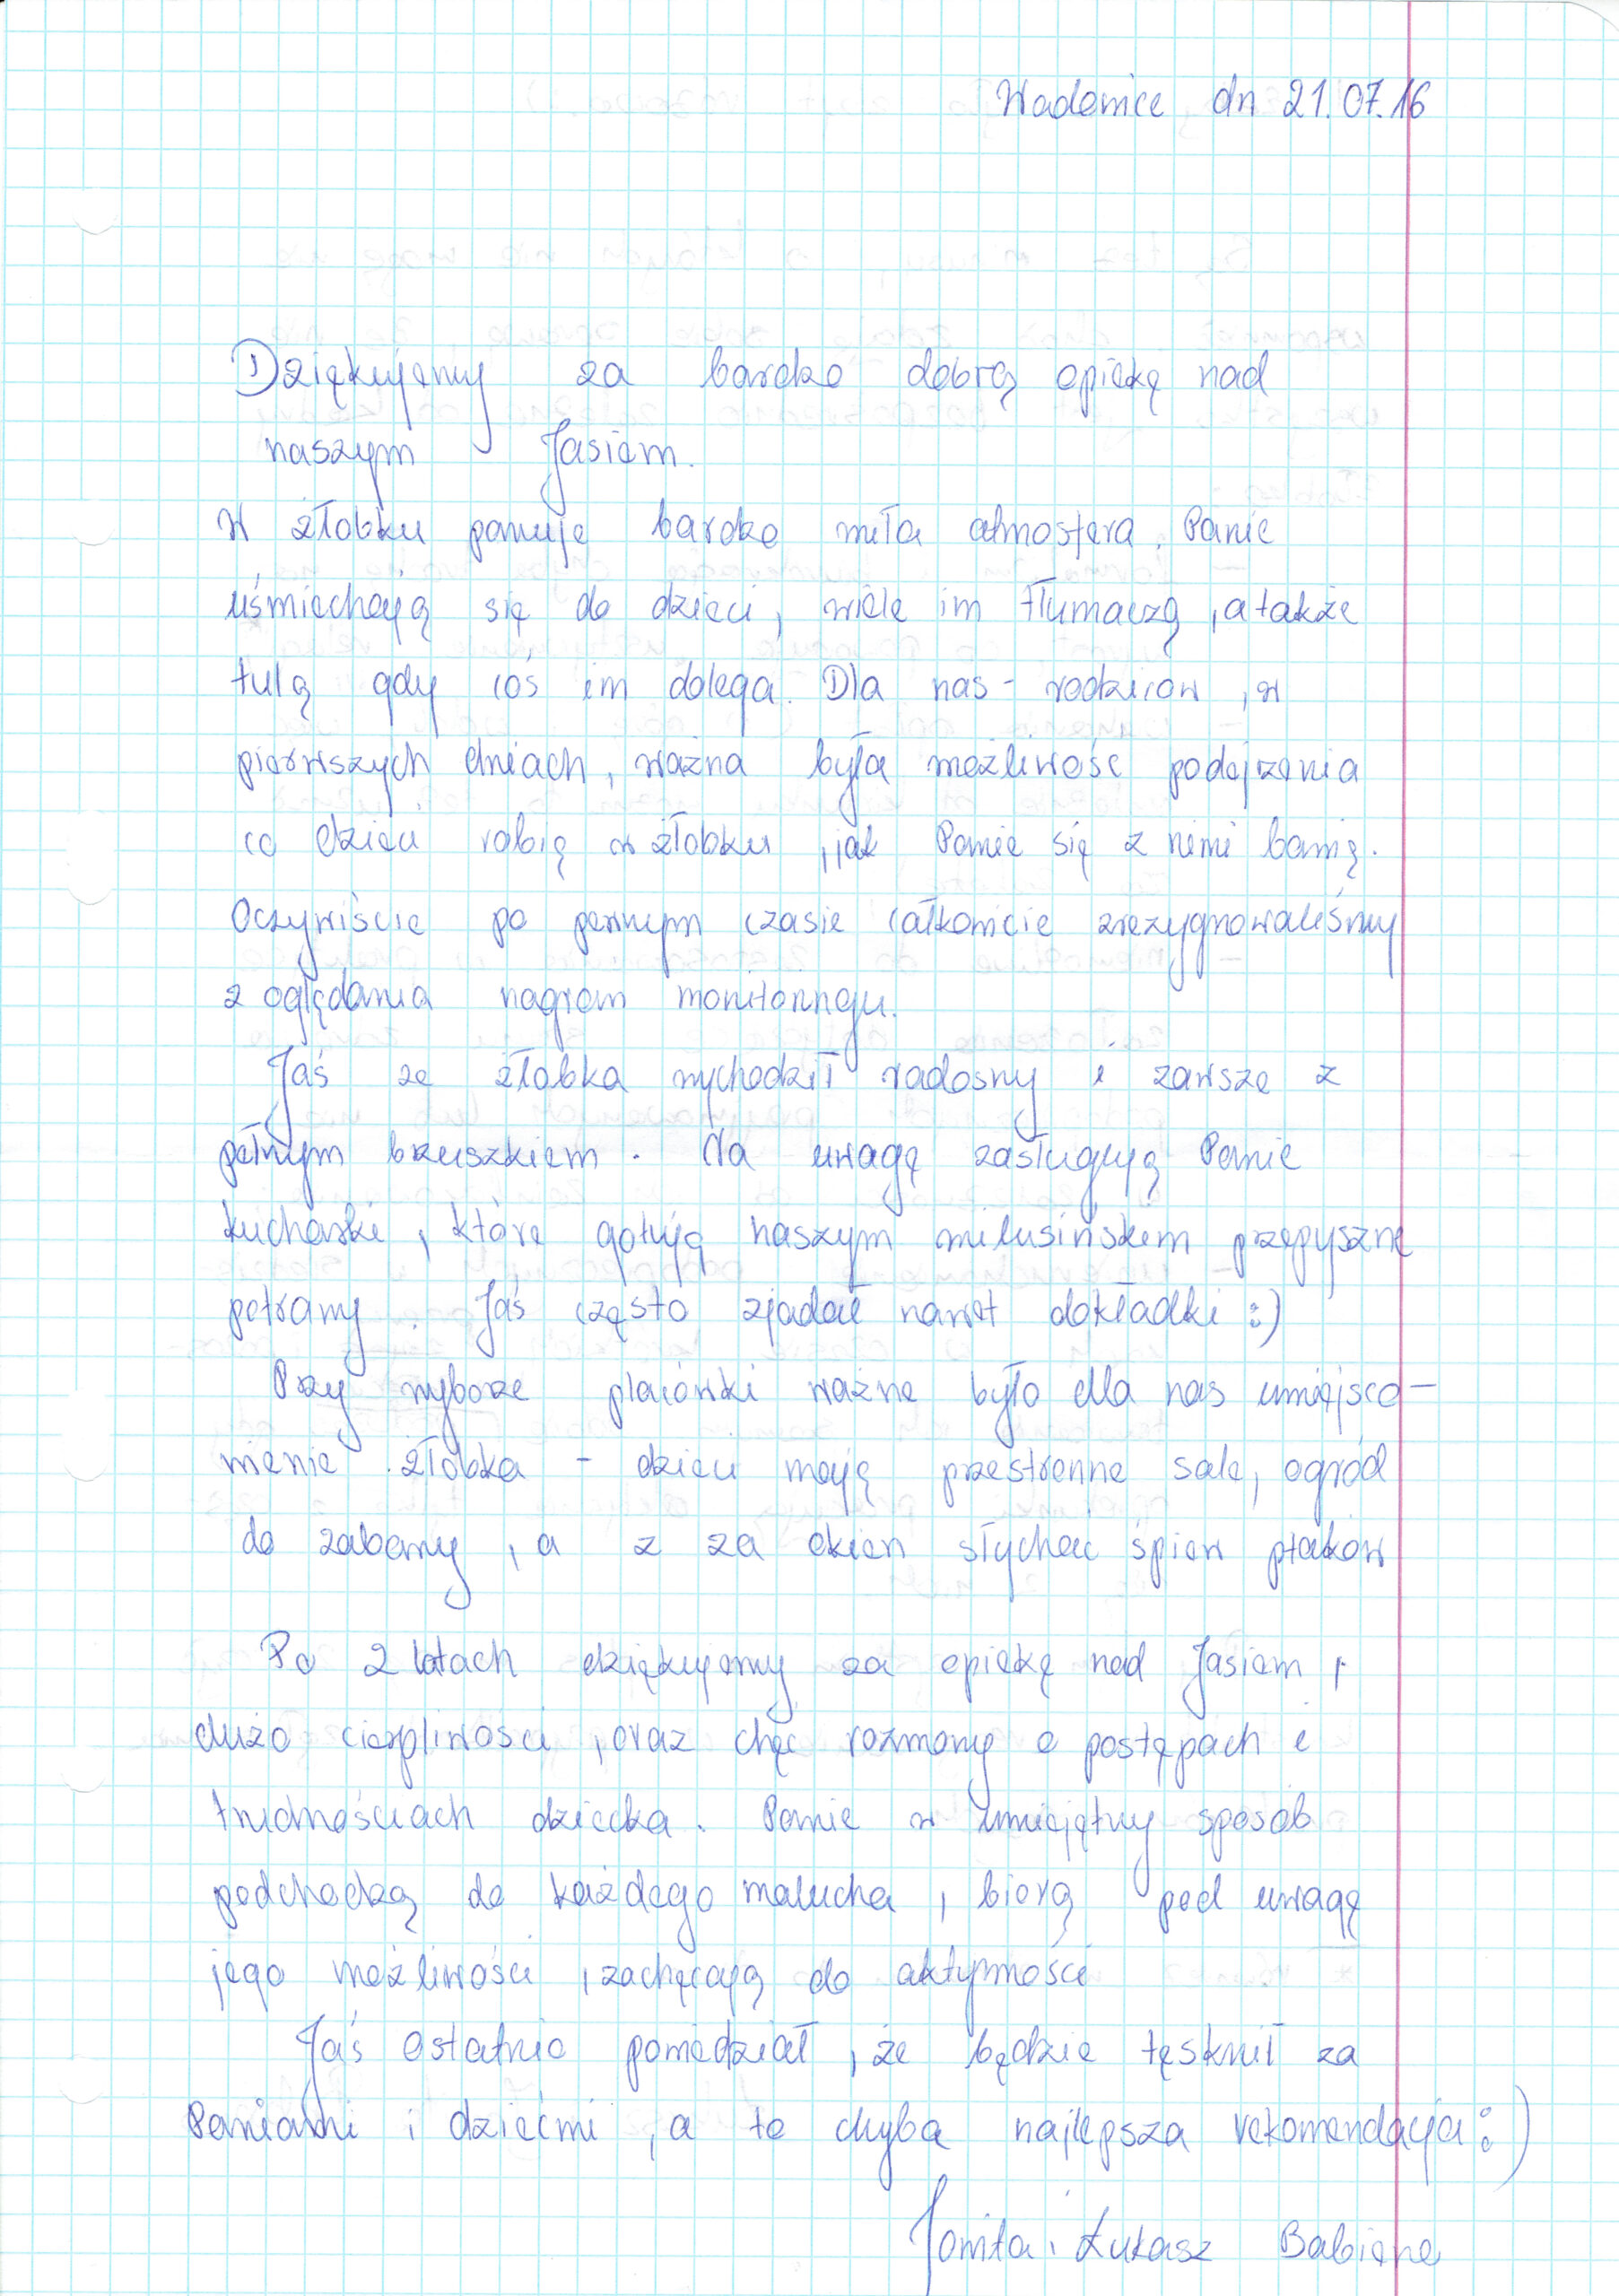 Wadowice dn 21.07.16
Dziękujemy za bardzo dobrą opiekę nad
naszym Jasiem.
W żłobku panuje bardzo miła atmosfera. Panie
uśmiechają się do dzieci, wiele im tłumaczą, a także
tulą gdy coś im dolega. Dla nas - rodziców, w
pierwszych dniach, ważna była możliwość podejrzenia
co dzieci robią w żłobku, jak Panie się z nimi bawią.
Oczywiście po pewnym czasie całkowicie zrezygnowaliśmy
z oglądania nagrań monitoringu.
Jaś ze żłobka wychodził radosny i zawsze z
pełnym brzuszkiem. Na uwagę zasługują Panie
kucharki, które gotują naszym milusińskim przepyszne
potrawy. Jaś często zjadał nawet dokładki :)
Przy wyborze placówki ważne było dla nas umiejsco-
wienie żłobka - dzieci mają przestronne sale, ogród
do zabawy, a z za okien słychać śpiew ptaków
Po 2 latach dziękujemy za opiekę nad Jasiem,
dużo cierpliwości, oraz chęć rozmowy o postępach i
trudnościach dziecka. Panie w umiejętny sposób
podchodzą do każdego malucha, biorą pod uwagę
jego możliwości, zachęcają do aktywności
Jaś ostatnio powiedział, że będzie tęsknił za
Paniami i dziećmi, a to chyba najlepsza rekomendacja :)
Jowita i Łukasz